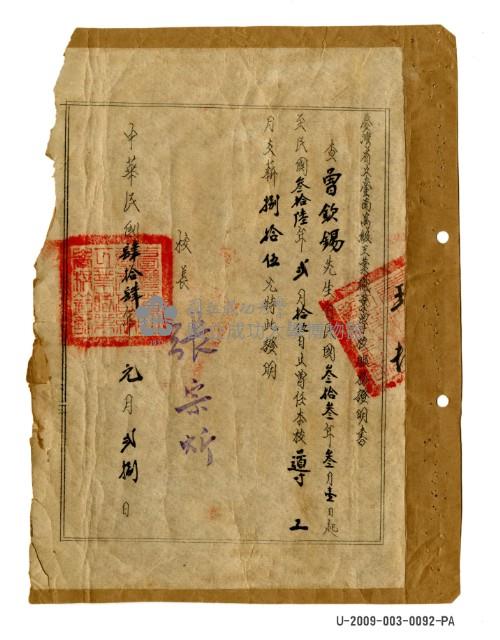 臺灣省立臺南高級工業職業學校服務證明書
查曾欽錫先生自民國叁拾叁年叁月壹日起
至民國叁拾陸年弍月拾 日止曾任本校導工
月支薪捌拾伍元特此證明
校長
張宗炘
中華民國肆拾肆年元月弍捌日
國立成功大學博物館
U-2009-003-0092-PA